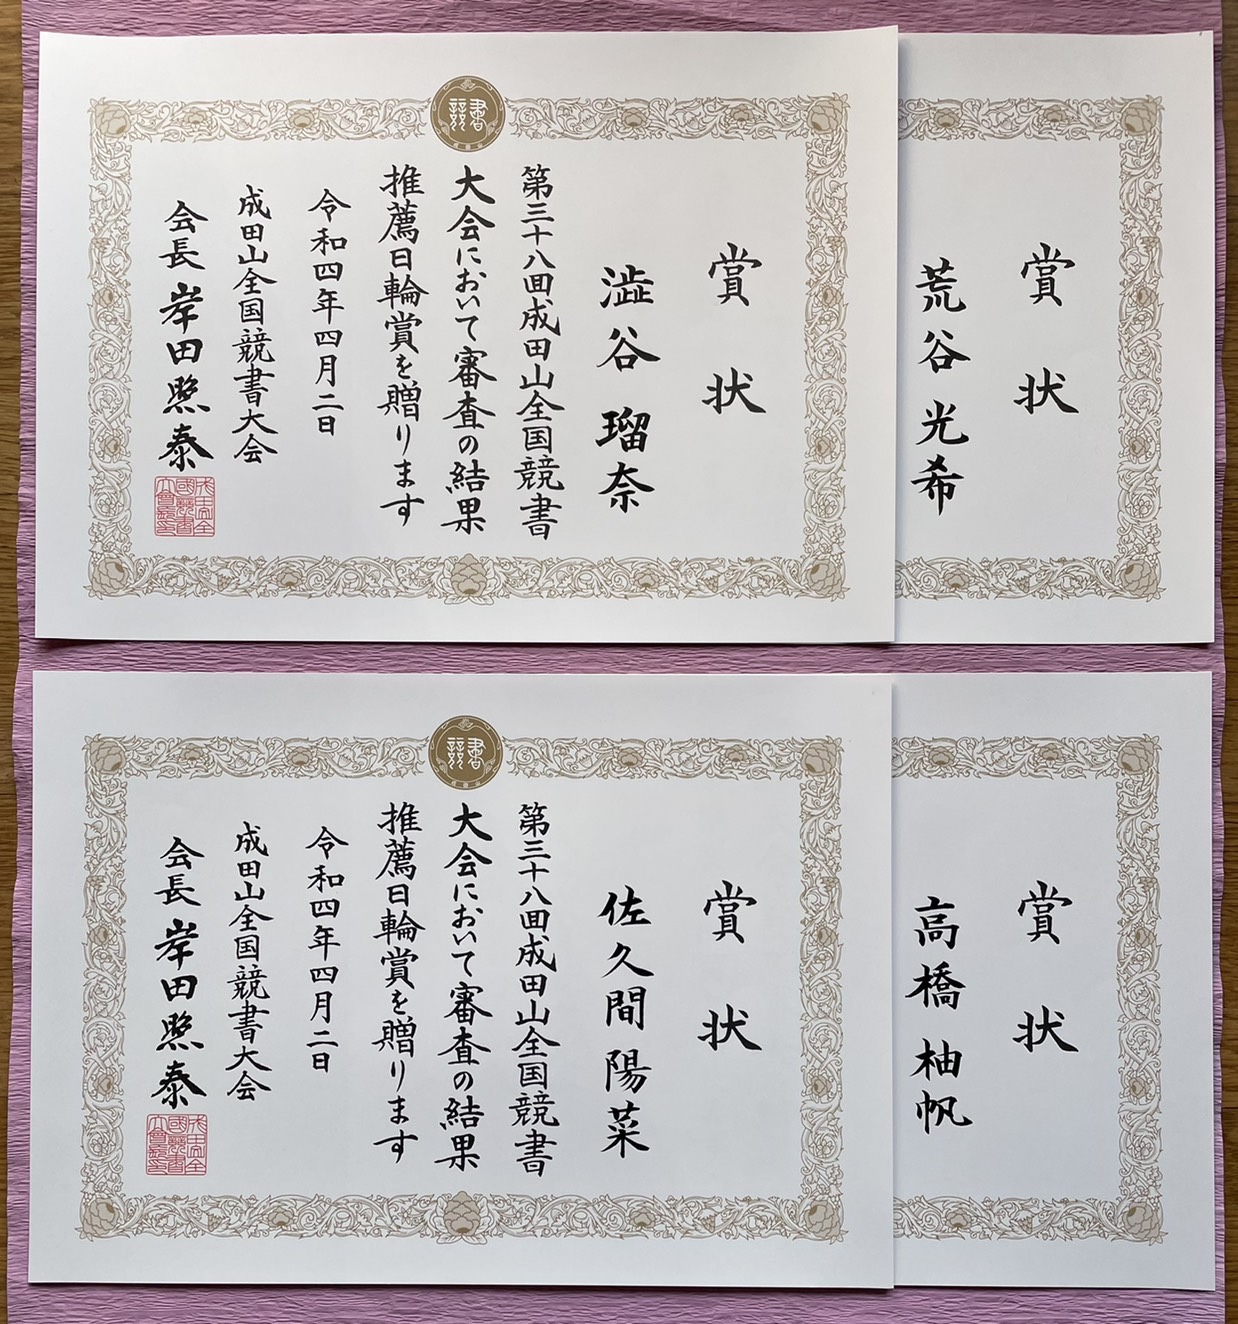 賞状
荒谷光希
賞状
澁谷瑠奈
第三十八回成田山全国競書
大会において審査の結果
推薦日輪賞を贈ります
令和四年四月二日
成田山全国競書大会
会長 岸田照泰
賞状
高橋柚帆
賞状
佐久間陽菜
第三十八回成田山全国競書
大会において審査の結果
推薦日輪賞を贈ります
令和四年四月二日
成田山全国競書大会
会長 岸田照泰